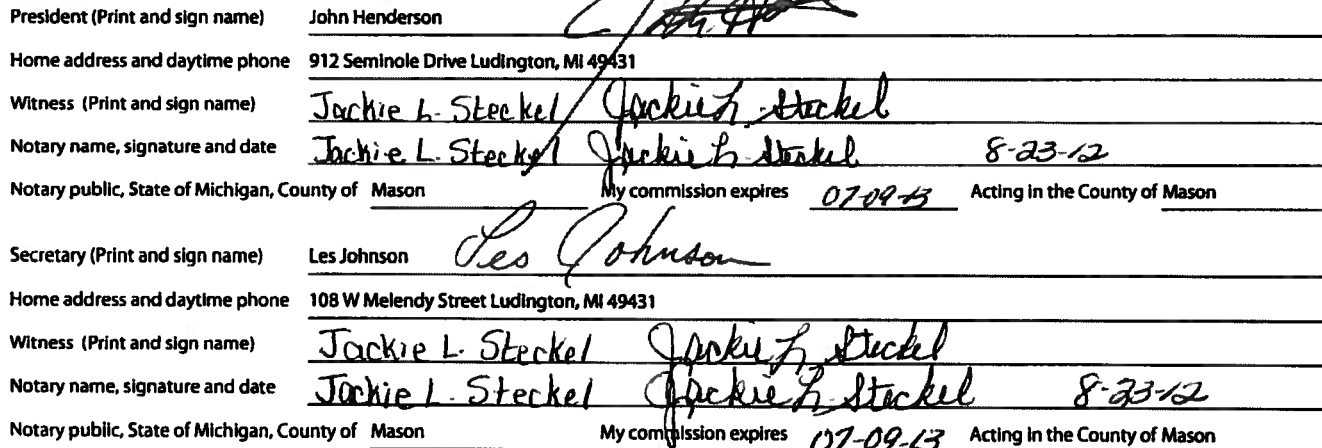 President (Print and sign name) John Henderson
Home address and daytime phone 912 Seminole Drive Ludington, MI 49431
Witness (Print and sign name) Jackie L. Steckel Jackie L. Steckel
Notary name, signature and date Jackie L. Steckel Jackie L. Steckel 8-23-12
Notary public, State of Michigan, County of Mason My commission expires 07-09-13 Acting in the County of Mason
Secretary (Print and sign name) Les Johnson Les Johnson
Home address and daytime phone 108 W Melendy Street Ludington, MI 49431
Witness (Print and sign name) Jackie L. Steckel Jackie L. Steckel
Notary name, signature and date Jackie L. Steckel Jackie L. Steckel 8-23-12
Notary public, State of Michigan, County of Mason My commission expires 07-09-13 Acting in the County of Mason